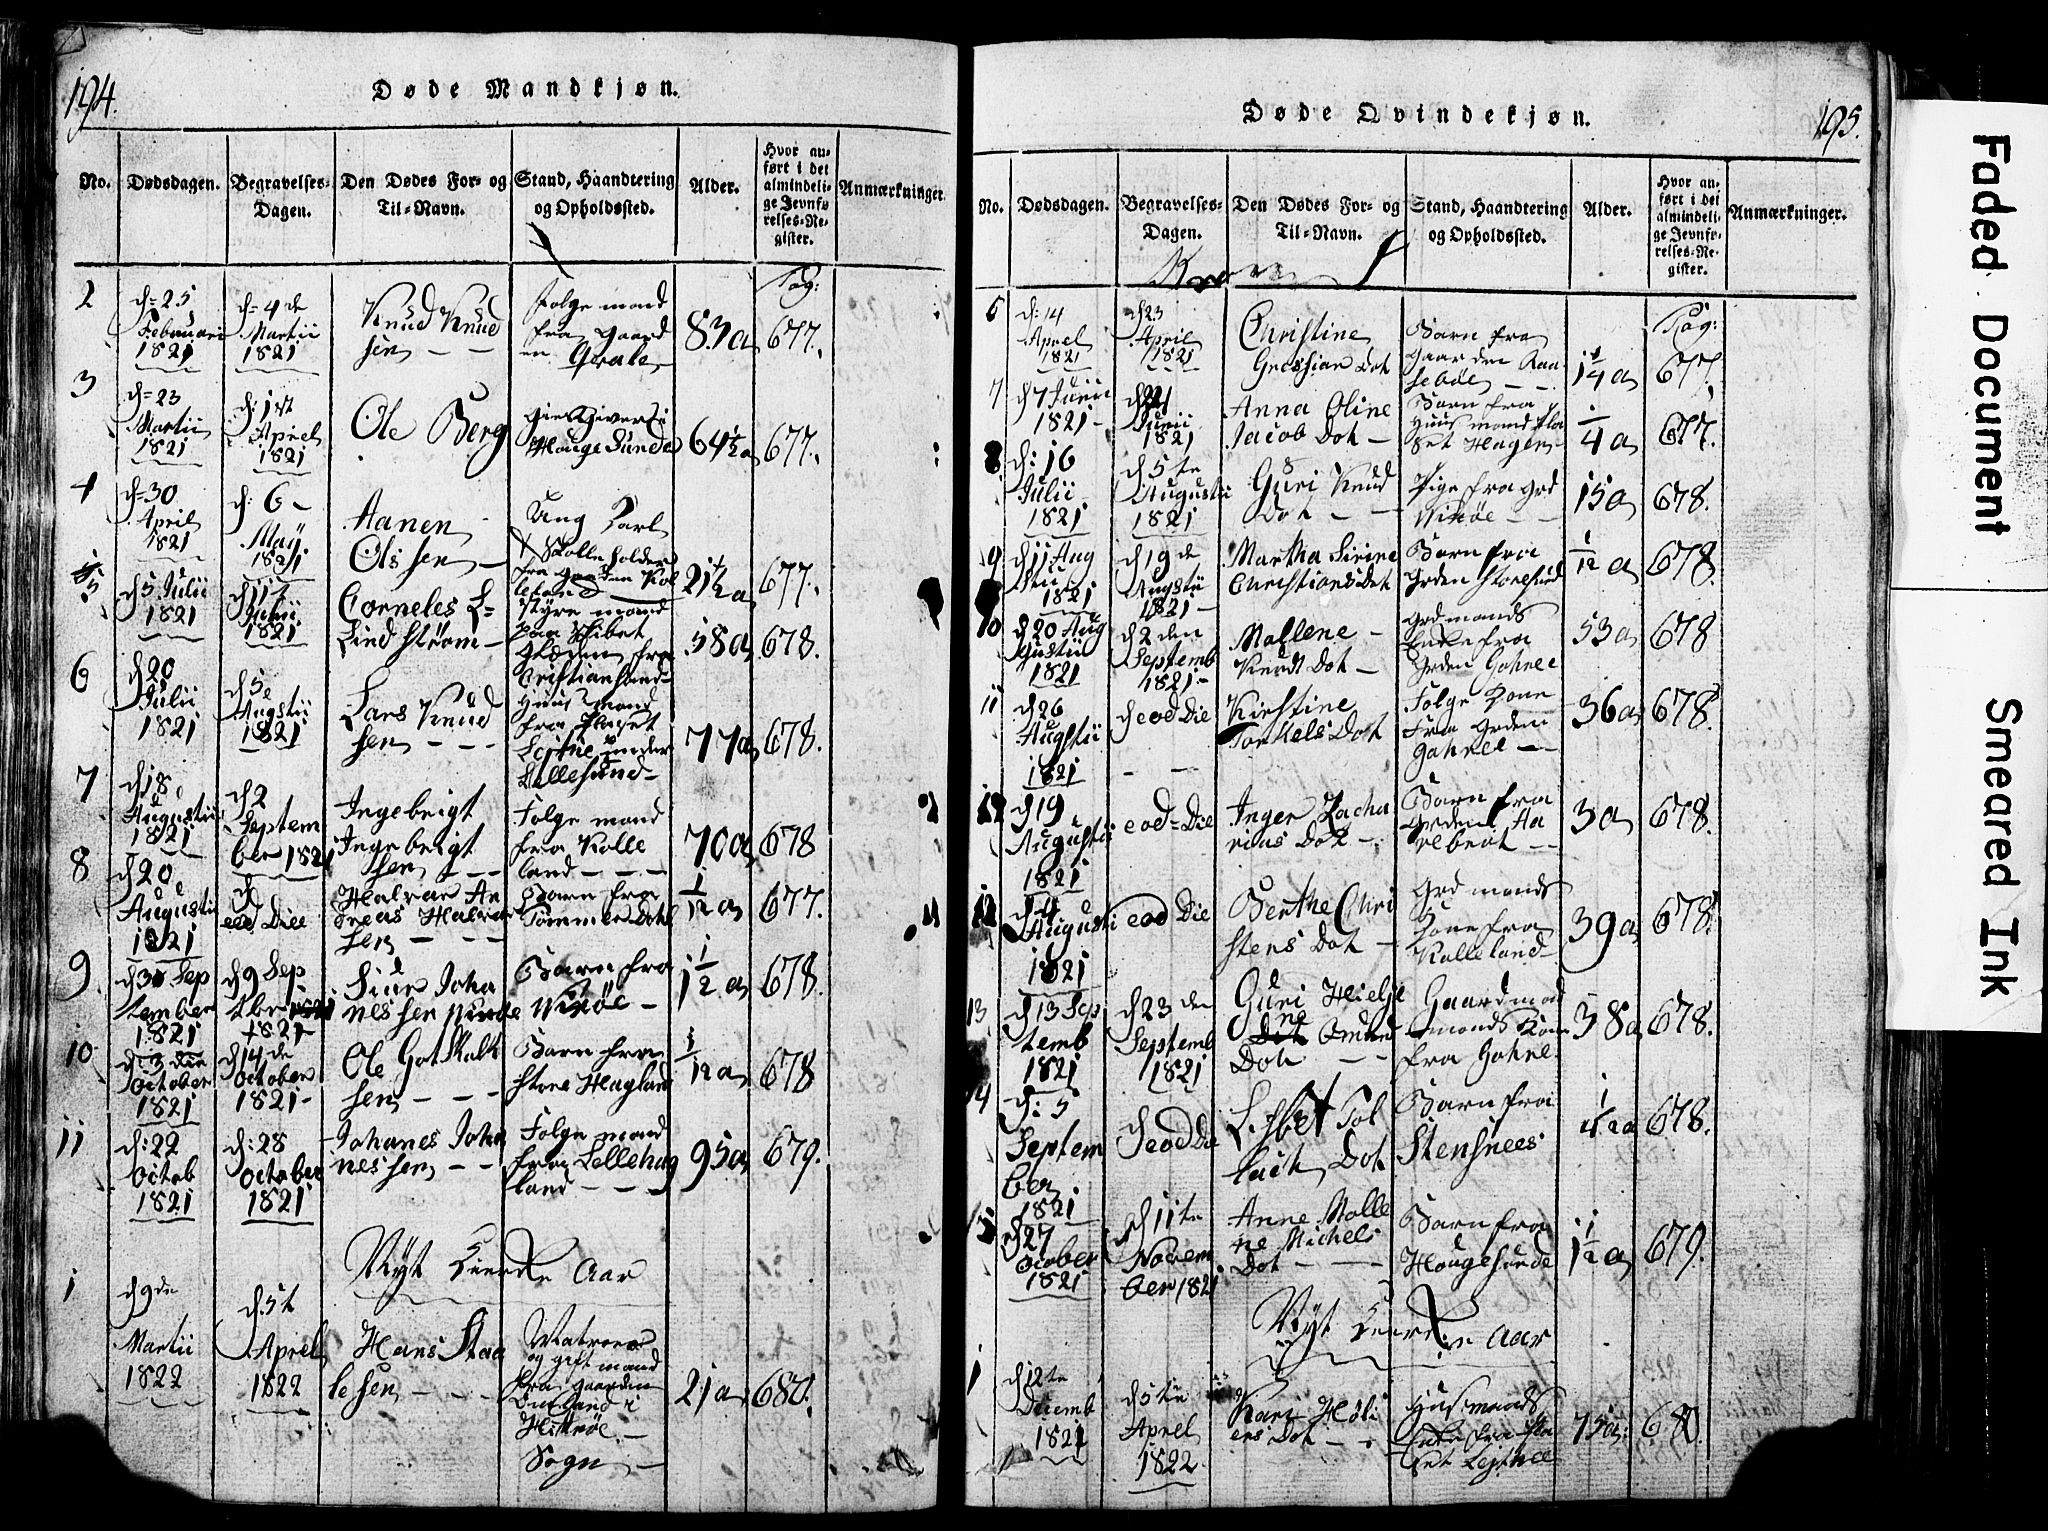 194.
Døde Mandkjøn.
No.
Dødsdagen.
Begravelses-
Dagen.
Den Dødes For- og
Til-Navn.
Stand, Haandtering
og Opholdssted.
Alder.
Hvor an-
ført i det
almindeli-
ge Jevnfø-
relses-Re-
gister.
Anmærkninger
Pag:
2
d=25
Februari
1821
d=4de
Martii
1821
Knud Knud
sen
Folge mand
fra Gaard
en
83a
677.
3
d=23
Martii
1821
d: 1st
Aprel
1821
Ole Berg
Hauge Sunde
64½a
677.
4
d=30
April
1821
d: 6
Maÿ
1821
Aanen
Olssen
Ung Karl
21½a
677.
5
d5 Julii
1821
d11te
Julii
1821
Corneles L=
Lindstrøm
Styre mand
paa Skibet
fra
Cristiansand
58a
678.
6
d20
Julii
1821
d5e
Augstii
1821
Lars Knud
sen
Huus mand
fra Plaset
Lillesund
77a
678.
7
d18
Augustii
1821
d2
Septem
ber 1821
Ingebrigt
Ingebrigt
sen
Folge mand
fra Kolle
land
70a
678
8
d20
Augustii
1821
d
eod Diee
Halvar An
dreas Halvar
sen
Barn fra
Tømmerdahl
1/12a
677.
9
d30 Sep
tember
1821
d9 Sep
tbr
1821
Johan
nessen
Barn fra
Vikøe
1½a
678.
10
d: 3 die
October
1821
d14de
October
1821
Ole Gotskalk
sen
Barn fra
store Hagland
1/12a
678
11
d: 22
Octob
1821
d: 28
October
1821
Johanes Joha
nessen
Folge mand
fra Lellehag
land
95a
679.
Nyt Kierke Aar
1
d9de
Martii
1822
d.5t
Aprel
1822
Hans Staa
lesen
Matroes
og gift mand
fra gaarden
i
Hittrøe
Sogn
21a
680.
195.
Døde Qvindekjøn.
No.
Dødsdagen.
Begravelses-
Dagen.
Den Dødes For- og
Til-Navn.
Stand, Haandtering
og Opholdssted.
Alder.
Hvor an-
ført i det
almindeli-
ge Jevnfø-
relses-Re-
gister.
Anmærkninger.
Pag:
6
d: 14
Aprel
1821
d23
April
1821
Christine
Gressian Dot
Barn fra
Gaarden Raa
sebøe
1/4a
677.
7
d7 Junii
1821
d24
Junii
1821
Anna Oline
Jacob Dot
Barn fra
Huusmand Pla
set Hagen
1/4a
677.
8
d: 16
Julii
1821
d5te
Augustii
1821
Guri Knud
Dot
Pige fra Grd
Vikøe
15a
678.
9
d11 Aug
stii
1821
d19de
Augstii
1821
Martha Sirine
Christians Dot
Barn fra
Grden Storesund
1/12a
678.
10
d20 Aug
gustii
1821
d2den
Septemb
1821
Mallene
Knudt Dot
Grdmands
Enke fra
Grden Gahnee
53a
678
11
d26
Augstii
1821
d eod Die
Kirstine
Torkels Dot
Folge Kone
Fra Grden
Gahnee
36a
678.
12
d19
Augustii
1821
eod=Die
Inger Zacha
rias Dot
Barn fra
Grden Aa
rebrot
3a
678.
12
Augusti
1821
eod Die
Berthe Chri
stens Dot
Grdmands
Kone fra
Kolleland
39a
678.
13
d13 Sep
temb
1821
d23den
Septemb
1821
Guri Hielje
Dot
Dot
Gaardmand
mands Kone
fra Gahne
38a
678.
14
d: 5
Septem
ber
1821
d eod Die
Lisbet Tol
lait Dot
Barn fra
Stensnees
678.
15
d27
Octcober
1821
d11te
Novem
ber 1821
Anne Malle
ne Michels
Dot
Barn fra
Haugesunde
1½a
679.
Nyt Kierke Aar
1
d12te
Decemb
1821
d5te
Aprel
1822
Kari Høli
ers Dot
Husmands
Enke fra Pla
set
75a:
680.
Faded Document
Smeared Ink